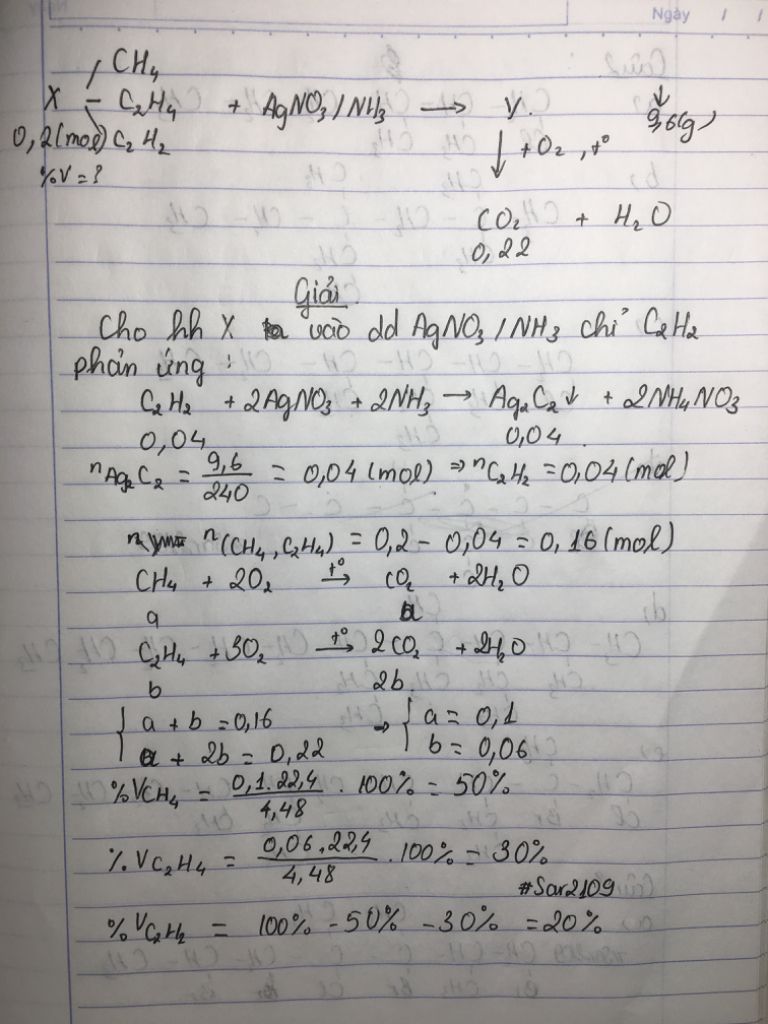 Ngày / /
CH4
X – C2H4 + AgNO3/NH3 → V. ↓
0,2(mol) C2H2 9,6(g)
%V = ? ↓ +O2, t°
CO2 + H2O
0,22
Giải
Cho hh X vào dd AgNO3/NH3 chỉ C2H2
phản ứng :
C2H2 + 2AgNO3 + 2NH3 → Ag2C2↓ + 2NH4NO3
0,04 0,04
nAg2C2 = 9,6/240 = 0,04 (mol) ⇒ nC2H2 = 0,04 (mol)
n(CH4, C2H4) = 0,2 - 0,04 = 0,16 (mol)
CH4 + 2O2 t°→ CO2 + 2H2O
a a
C2H4 + 3O2 t°→ 2CO2 + 2H2O
b 2b
{ a + b = 0,16 → { a = 0,1
a + 2b = 0,22 b = 0,06
%VCH4 = 0,1.22,4/4,48 . 100% = 50%
%VC2H4 = 0,06.22,4/4,48 .100% = 30%
#Sar2109
%VC2H2 = 100% - 50% - 30% = 20%